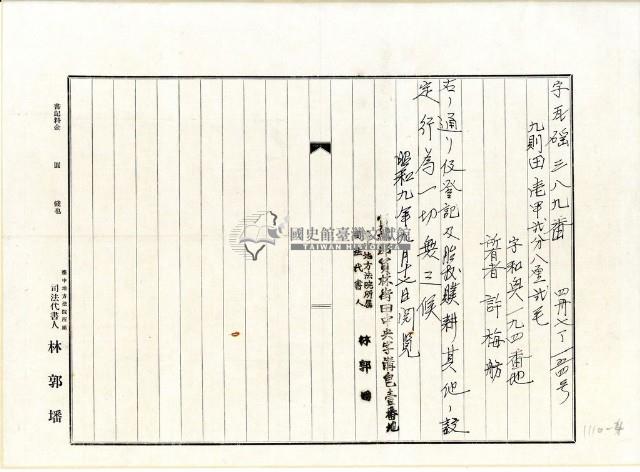 字瓦磘三八九番 四冊七丁一五四号
九則田壱甲弐分八厘弐毛
字和興一九四番地
所有者 許梅舫
右ノ通リ仮登記及胎権贌耕其他ノ設
定行為一切無之候
昭和九年 月 日閲覧
員林街田中央字溝皂壹番地
地方法院所屬
司法代書人 林郭
國史館臺灣文獻館
TAIWAN HISTORICA
書記料金 圓 錢也
臺中地方法院所屬
司法代書人 林郭墦